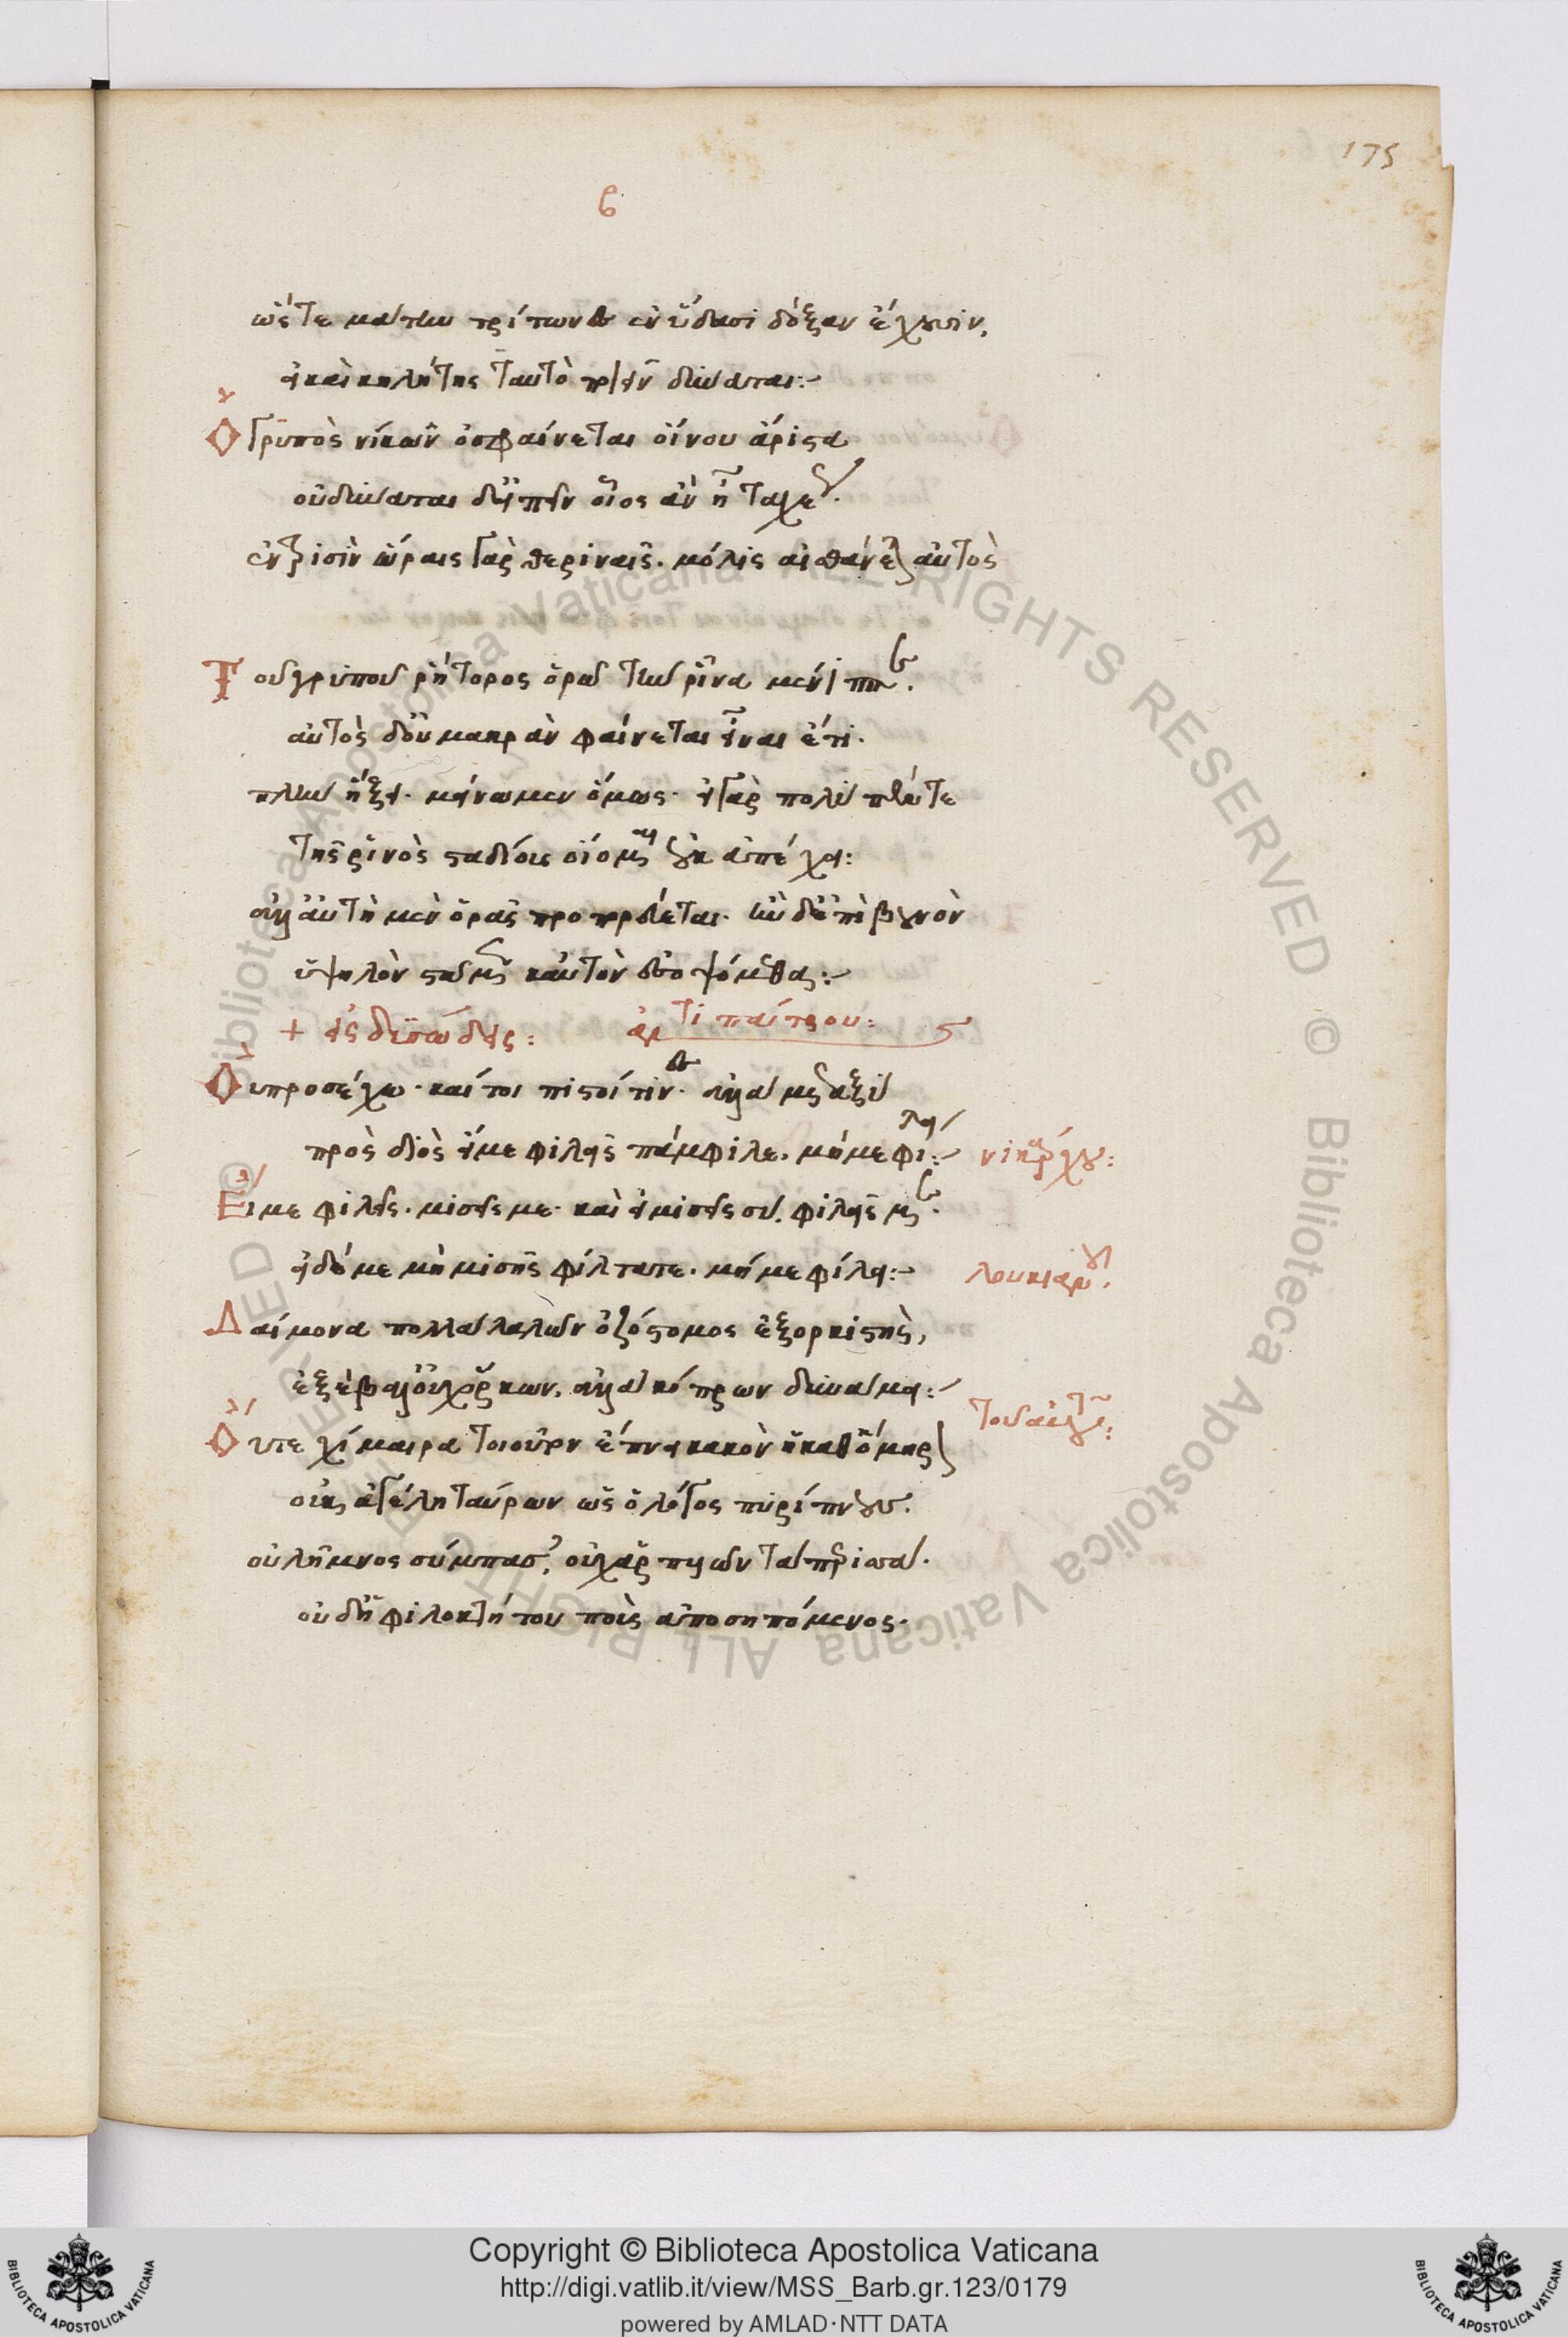 175
β
ὥστε μάτην τρίτωνες ἐν ὕδασι δόξαν ἔχουσιν,
εἰ καὶ κηλήτης ταυτὸ ποιεῖν δύναται:
Ὁ γρυπὸς νίκων ὀσφραίνεται οἴνου ἄριστα
οὐ δύναται δ' εἰπεῖν οἷος ἂν ᾖ ταχέως.
ἐν τρισὶν ὥραις γὰρ θεριναῖς. μόλις αἰσθάνεται αὐτὸς
Τοῦ γρυποῦ ῥήτορος ὁρῶ τὴν ῥῖνα μένιππε.
αὐτὸς δ' οὖν μακρὰν φαίνεται εἶναι ἔτι.
πλὴν ἥξει. μείνωμεν ὅμως. εἰ γὰρ πολὺ πέντε
τῆς ῥινὸς σταδίους οἴομαι οὐκ ἀπέχει:
ἀλλ' αὐτὴ μὲν ὁρᾷς προπορεύεται. ἢν δ' ἐπὶ βουνὸν
ὑψηλὸν στῶμεν καὐτὸν ἐσοψόμεθα:
+ εἰς δυσώδεις: ἀρ τι παίτρου: ϛ
Οὐ προσέχω. καίτοι πιστοί τινες. ἀλλὰ μεταξὺ
πρὸς διὸς εἴ με φιλεῖς πάμφιλε. μή με φίλει:
νικάρχου:
Εἴ με φιλεῖς. μισεῖς με. καὶ εἰ μισεῖς σὺ. φιλεῖς με.
εἰ δέ με μὴ μισῇς φίλτατε. μή με φίλει:
λουκιανοῦ.
Δαίμονα πολλὰ λαλῶν ὀζόστομος ἐξορκιστὴς,
ἐξέβαλ' οὐχ ὅρκων. ἀλλὰ κόπρων δυνάμει:
τοῦ αὐτοῦ:
Οὔτε χίμαιρα τοιοῦτον ἔπνει κακὸν ἡ καθ' ὅμηρον
οὐκ ἀγέλη ταύρων ὡς ὁ λόγος πυρίπνους.
οὐ λῆμνος σύμπασ', οὐχ ἁρπυιῶν τὰ περισσά.
οὐδ' ἡ φιλοκτήτου ποὺς ἀποσηπόμενος.
Biblioteca Apostolica Vaticana ALL RIGHTS RESERVED ©
Copyright © Biblioteca Apostolica Vaticana
http://digi.vatlib.it/view/MSS_Barb.gr.123/0179
powered by AMLAD·NTT DATA
BIBLIOTECA APOSTOLICA VATICANA
BIBLIOTECA APOSTOLICA VATICANA